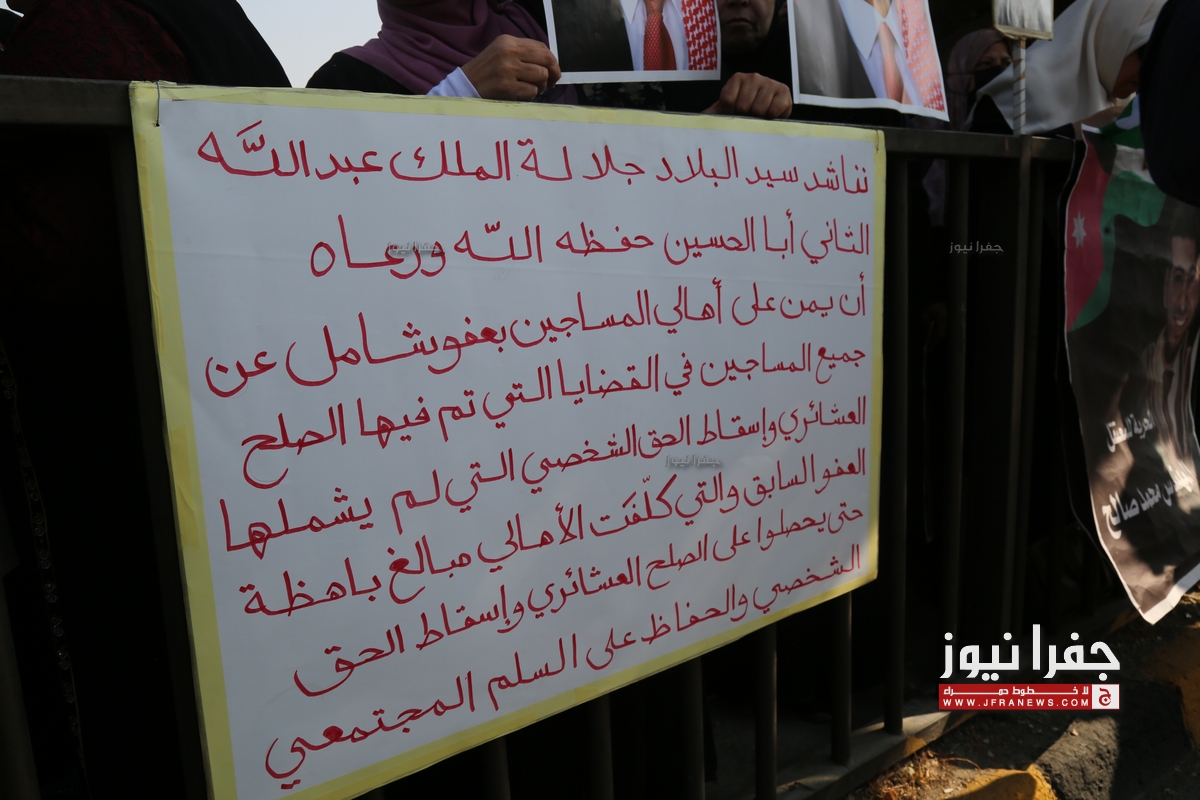 نناشد سيد البلاد جلالة الملك عبدالله
الثاني أبا الحسين حفظه الله ورعاه
أن يمن على أهالي المساجين بعفو شامل عن
جميع المساجين في القضايا التي تم فيها الصلح
العشائري وإسقاط الحق الشخصي التي لم يشملها
العفو السابق والتي كلّفَت الأهالي مبالغ باهظة
حتى يحصلوا على الصلح العشائري وإسقاط الحق
الشخصي والحفاظ على السلم المجتمعي
جفرا نيوز
جفرا نيوز
جفرا نيوز
صالح
جفرا نيوز
لا خطوط حمراء
WWW.JFRANEWS.COM